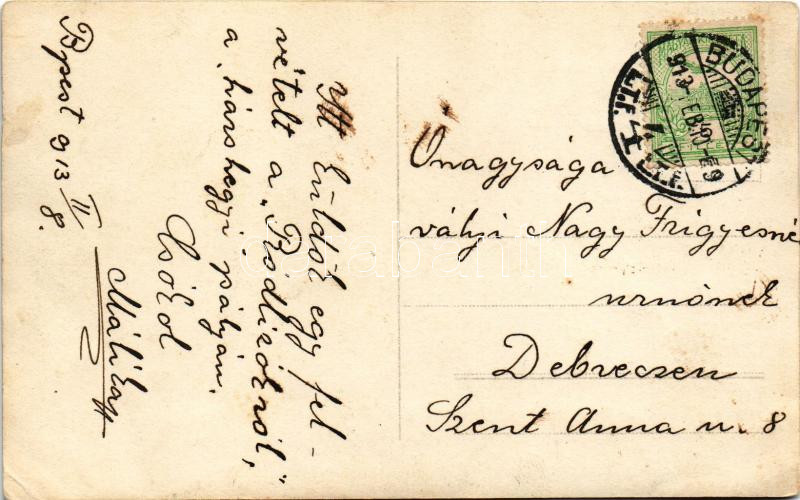 Bpest 913 II/8.
Itt küldök egy fel-
vételt a „Rodlizókról",
a hárshegyi pályán.
Csókol
Önagysága
váhji Nagy Frigyesné
urnőnek
Debreczen
Szent Anna u. 8
BUDAPEST
913 FEB
4
darabanth